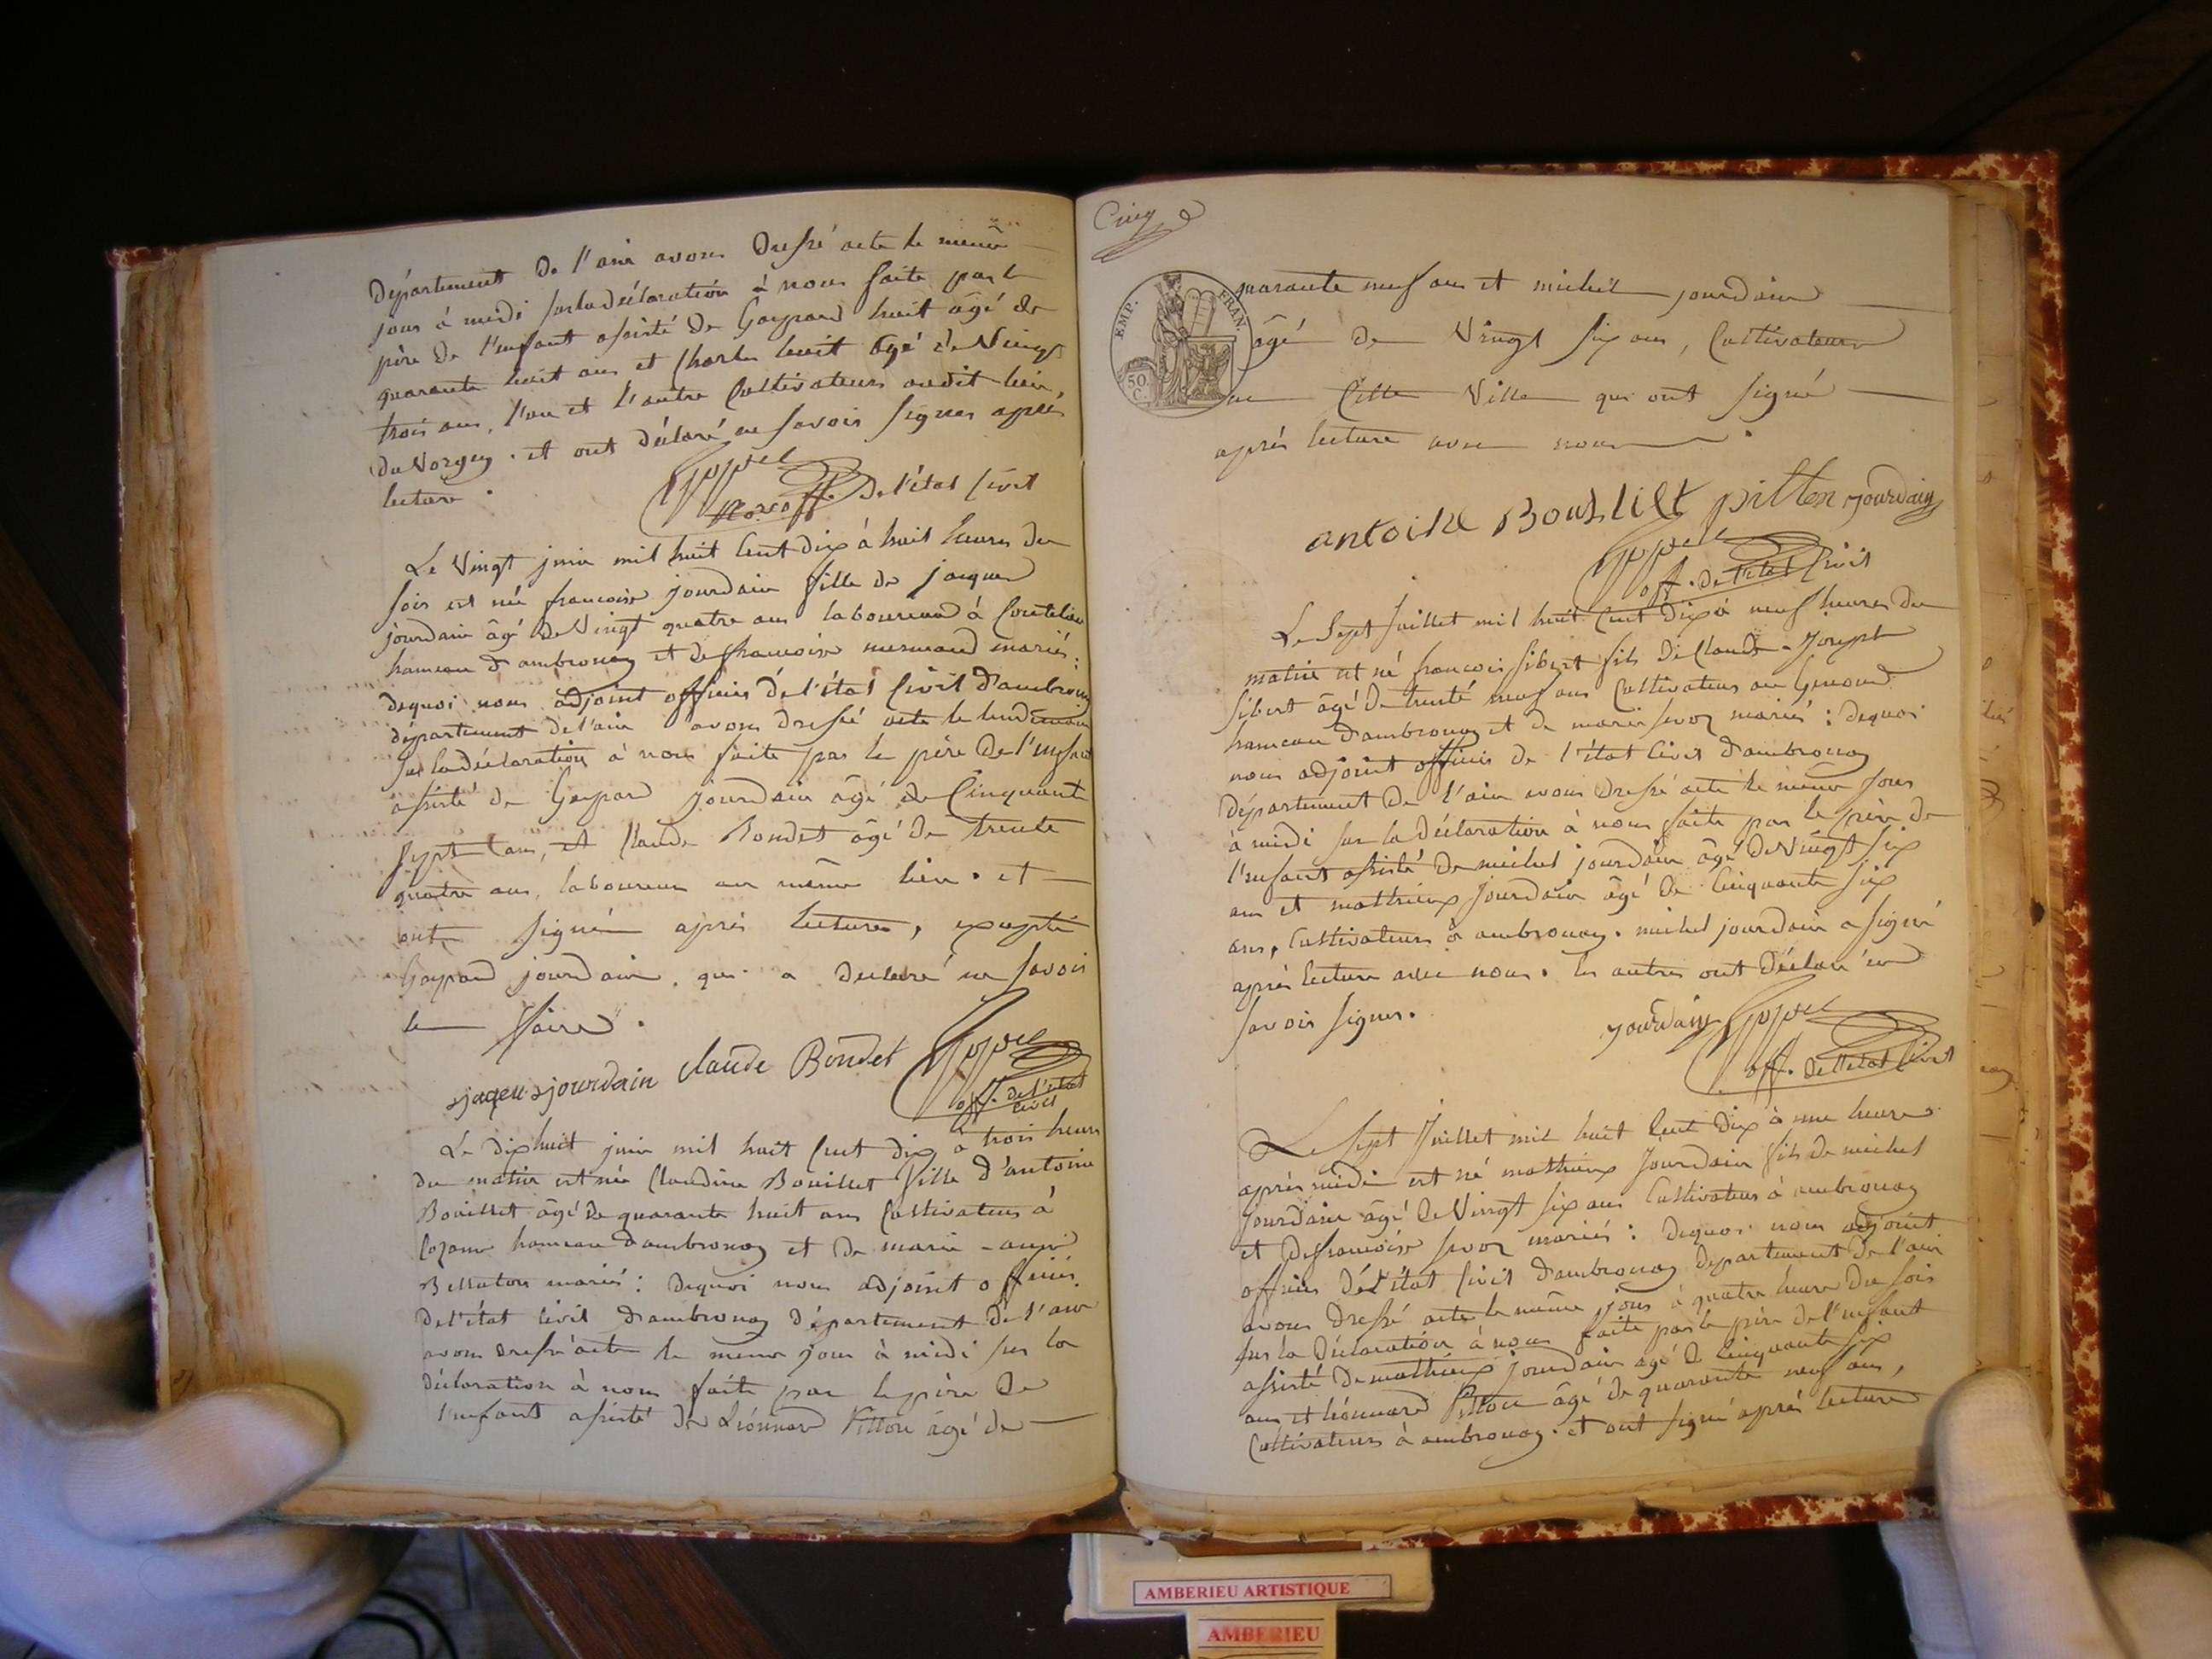 Département De l'ain avons Dressé acte le même
jour à midi sur la déclaration à nous faite par le
père De l'enfant assisté De Gaspard huit âgé de
quarante huit ans et Charles huit âgé de Vingt
trois ans, l'un et l'autre Cultivateurs audit lieu
du Vorgey. et ont déclaré ne savoir signer après
lecture.
off. De l'état Civil
Le Vingt juin mil huit Cent dix à huit heures du
soir est née francoise jourdain fille de jacques
jourdain âgé De Vingt quatre ans laboureur à Coutelieu
hameau d'ambronay et de francoise mermand mariés:
dequoi nous adjoint officier de l'état Civil d'ambronay
département de l'ain avons dressé acte le lendemain
sur la déclaration à nous faite par le père De l'enfant
assisté de Gaspard jourdain âgé de Cinquante
sept ans, et Claude Bondet âgé De trente
quatre ans, laboureurs au même lieu. et
ont signé après lecture, excepté
Gaspard jourdain qui a déclaré ne savoir
le faire.
jaqeu jourdain Claude Bondet
off. de l'état
civil
Le dix huit juin mil huit Cent dix à trois heures
du matin est née Claudine Bouillet fille d'antoine
Bouillet âgé De quarante huit ans Cultivateur à
hameau d'ambronay et De marie-
mariés: Dequoi nous adjoint officier
De l'état Civil d'ambronay département De l'ain
avons dressé acte le même jour à midi sur la
déclaration à nous faite par le père De
l'enfant assisté De Léonnard Pitton âgé de
Cinq
EMP. FRAN.
50 C.
quarante neuf ans et michel jourdain
âgé De Vingt six ans, Cultivateurs
en Cette Ville qui ont signé
après lecture avec nous.
antoine Bouilliet pitton jourdain
off. de l'état Civil
Le Sept Juillet mil huit Cent Dix à neuf heures du
matin est né francois sibert fils De Claude-Joseph
sibert âgé De trente neuf ans Cultivateur au Genoud
hameau d'ambronay et de marie sevoz mariés: Dequoi
nous adjoint officier de l'état Civil d'ambronay
Département De l'ain avons Dressé acte le même jour
à midi sur la déclaration à nous faite par le père de
l'enfant assisté De michel jourdain âgé De Vingt six
ans et mathieux jourdain âgé de Cinquante six
ans, Cultivateurs à ambronay. michel jourdain a signé
après lecture avec nous. les autres ont déclaré ne
savoir signer.
jourdain
off. de l'état Civil
Le Sept Juillet mil huit Cent Dix à une heure
après midi est né mathieux Jourdain fils De michel
Jourdain âgé De Vingt six ans Cultivateur à ambronay
et De francoise sevoz mariés: Dequoi nous adjoint
officier De l'état Civil d'ambronay Département De l'ain
avons Dressé acte le même jour à quatre heure du soir
sur la Déclaration à nous faite par le père de l'enfant
assisté De mathieux Jourdain agé De Cinquante six
ans et Léonnard Pitton âgé de quarante neuf ans,
Cultivateurs à ambronay. et ont signé après lecture
AMBERIEU ARTISTIQUE
AMBERIEU